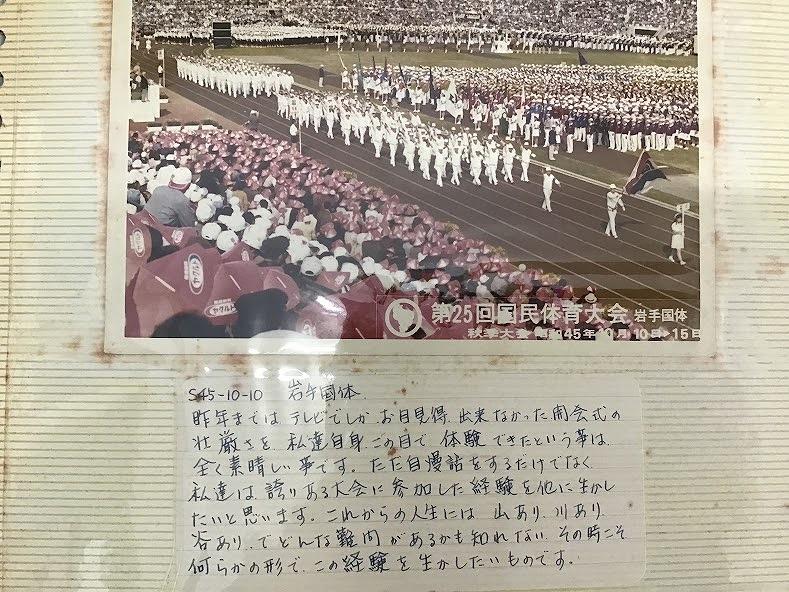 ヤクルト
第25回国民体育大会 岩手国体
秋季大会 昭和45年10月10日▶15日
S45-10-10 岩手国体.
昨年までは、テレビでしか、お目見得、出来なかった、開会式の
壮厳さを、私達自身、この目で、体験できたという事は、
全く素晴しい事です。ただ自慢話をするだけでなく、
私達は、誇りある大会に参加した経験を他に生かし
たいと思います。これからの人生には、山あり、川あり、
谷あり、でどんな難問があるかも知れない、その時こそ
何らかの形で、この経験を生かしたいものです。